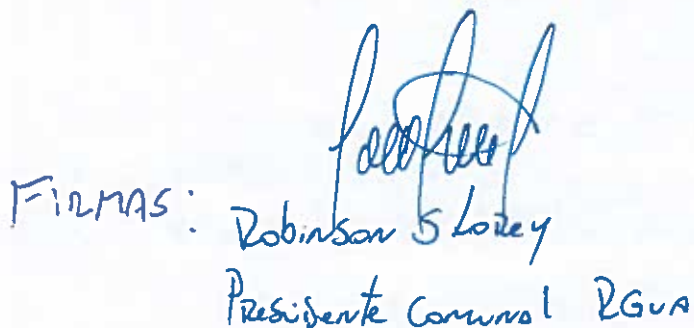 FIRMAS:
Robinson Storey
Presidente Comunal RGUA